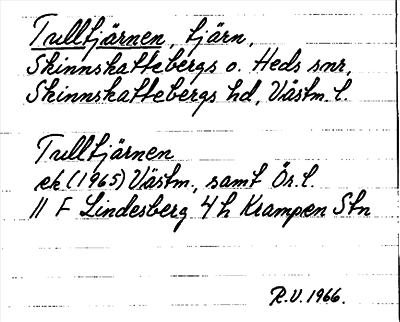 Trulltjärnen, tjärn,
Skinnskattebergs o. Heds snr,
Skinnskattebergs hd, Västm. l.
Trulltjärnen
ek (1965) Västm., samt Ör. l.
11 F Lindesberg 4 h Krampen Stn
R.V. 1966.